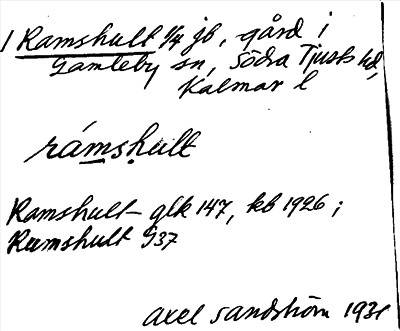 1 Ramshult 1/4 jb, gård i
Gamleby sn, Södra Tjusts hd,
Kalmar l
rámsḥult
Ramshult - glk 147, kb 1926;
Ramshult G37
Axel Sandström 1931